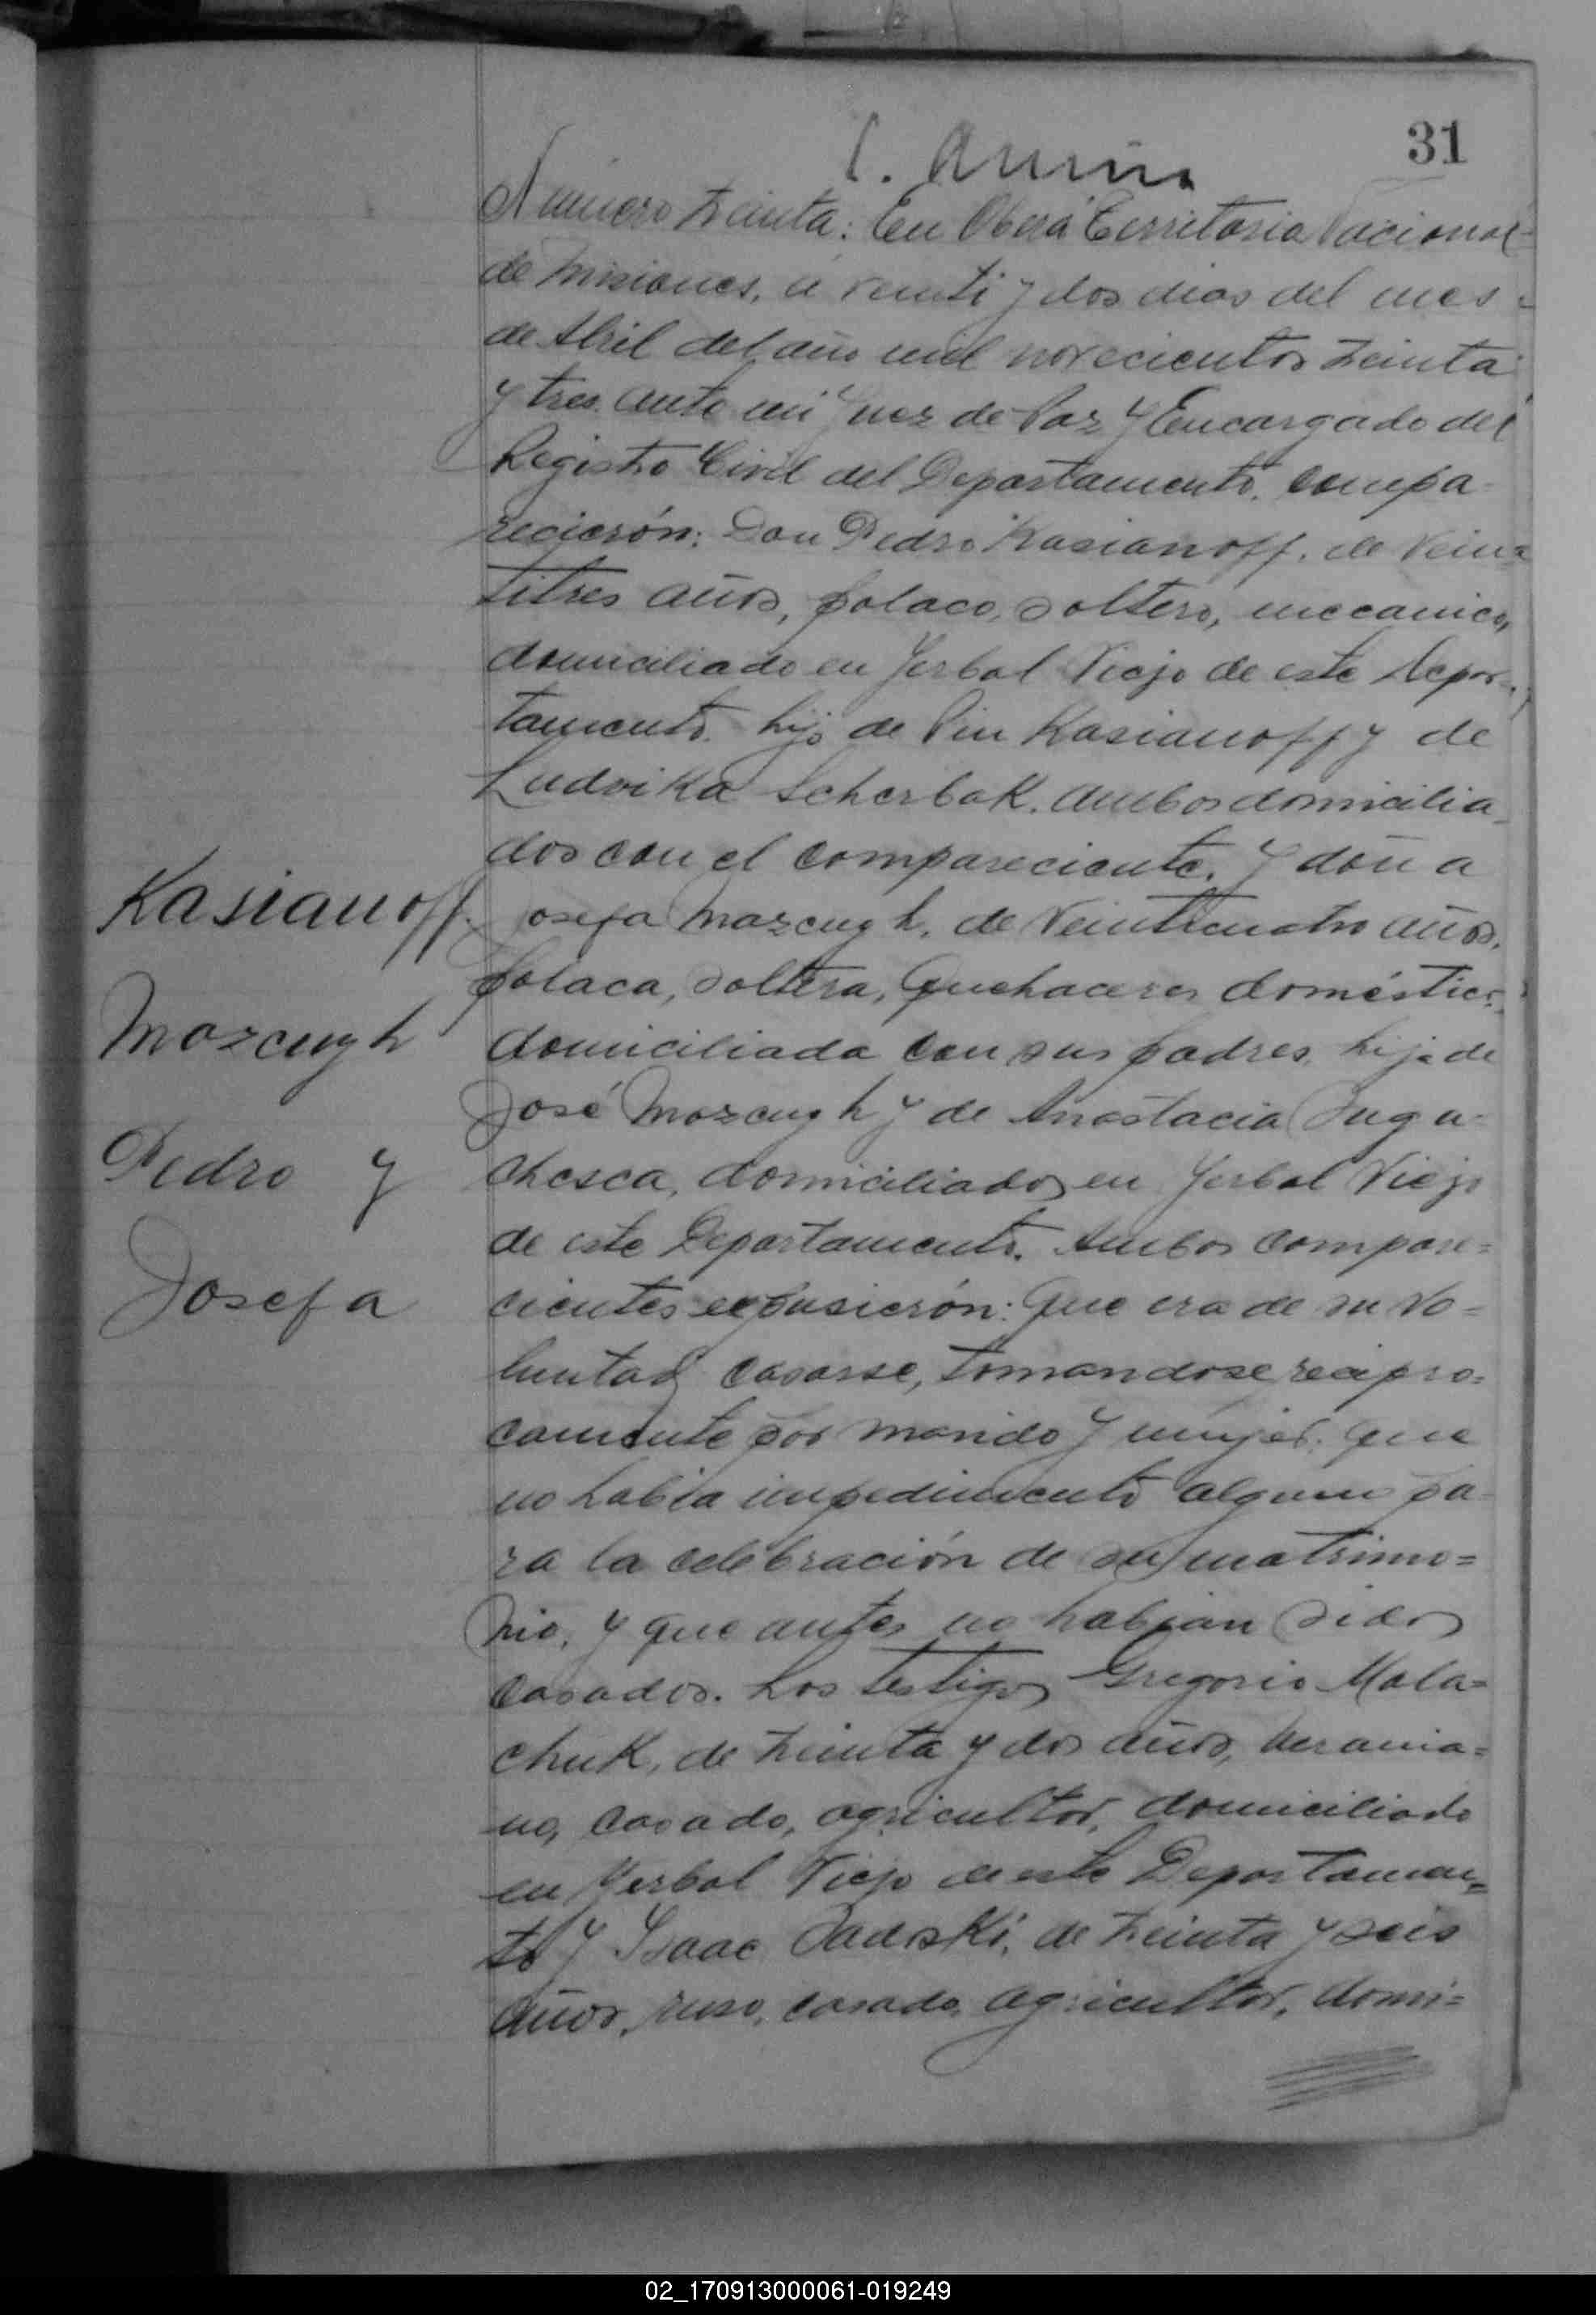 31
Número treinta: En Oberá Territorio Nacional
de Misiones, a veinti y dos dias del mes
de Abril del año mil novecientos treinta
y tres ante mi Juez de Paz y Encargado del
Registro Civil del Departamento. compa-
recierón: Don Pedro Kasianoff. de Vein=
titres años, polaco, soltero, mecanico,
domiciliado en Yerbal Viejo de este Depar-
tamento. hijo de Kasianoff y de
Ludvika Scherbak. ambos domicilia-
dos con el compareciente. Y doña
Kasianoff.
Josefa Mazcugh. de Veinticuatro años.
polaca, soltera, Quehaceres doméstico.
Mozcugh
domiciliada con sus padres. hija de
José Mozcugh y de Anastacia Juga-
Pedro y
chesca, domiciliados en Yerbal Viejo
de este Departamento. Ambos compare=
Josefa
cientes expusierón: Que era de su vo=
luntad casarse, tomandose recipro=
camente por marido y mujer. que
no habia impedimento alguno pa-
ra la celebración de su matrimo=
nio, y que antes no habian sidos
casados. Los testigos Gregorio Mala=
chuk, de treinta y dos años, Ucrania=
no, casado, agricultor, domiciliado
en Yerbal Viejo de este Departamen=
to y Isaac Sadoski, de treinta y seis
años, ruso, casado, agricultor, domi=
02_170913000061-019249